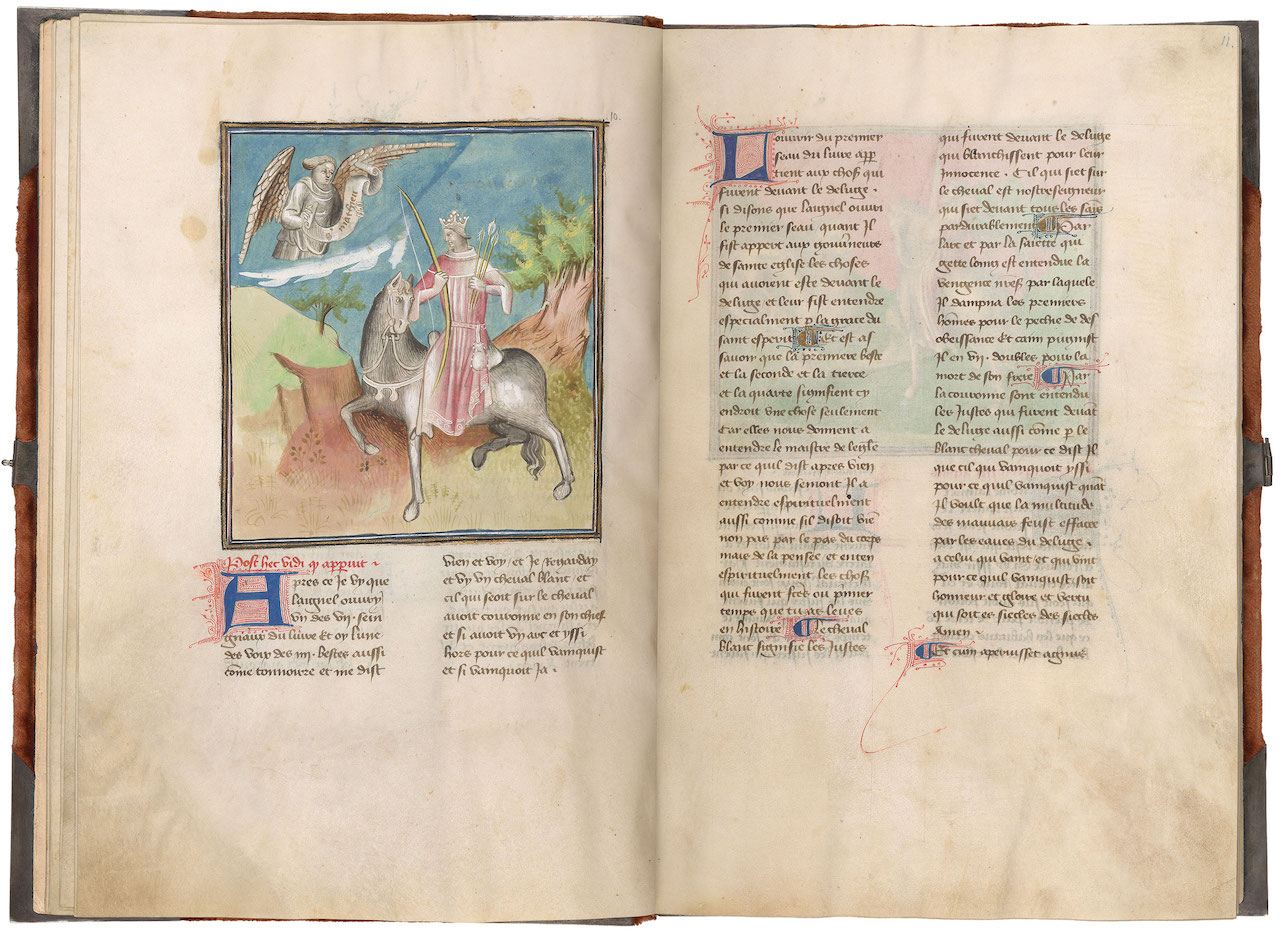 10.
Post hec vidi q̄ apperuit.
Apres ce Je vy que
laignel ouury
vn des vij. sein
gnaux du liure et oy lune
des voix des iiij. bestes aussi
cōme tonnoirre et me dist
vien et voy. et Je Regarday
et vy vn cheual blanc et
cil qui seoit sur le cheual
auoit couronne en son chief
et si auoit vn arc et yssi
hors pour ce quil vainquist
et si vainquoit Ja.
11.
Louurir du premier
seau du liure app̄
tient aux chos̄ qui
furent deuant le deluge.
si disons que laignel ouuri
le premier seau quant Il
fist appert aux gouuneurs
de sainte eglise les choses
qui auoient este deuant le
deluge et leur fist entendre
especialment p̲ la grace du
saint esperit Et est as
sauoir que la premiere beste
et la seconde et la tierce
et la quarte signifient cy
endroit vne chose seulement
Car elles nous donnent a
entendre le maistre de leigl̄e
par ce quil dist apres vien
et voy nous semont Il a
entendre espirituelment
aussi comme sil disoit viē
non pas par le pas du corps
mais de la pensee et enten
espirituelment les chos̄
qui furent fc̄es ou p̄mier
temps que tu as leues
en histoire Le cheual
blanc signifie les Justes
qui furent deuant le deluge
qui blanchissent pour leur
Innocence. Cil qui siet sur
le cheual est nostreseigneur
qui siet deuant tous les sains
pardurablement Par
larc et par la saiette qui
gette loing est entendue la
vengence nr̄e par laquele
Il dampna les premiers
homes pour le pechie de des
obeissance Et cain pugnist
Il en vij. doubles pour la
mort de son frere Par
la couronne sont entendu
les Justes qui furent deuāt
le deluge aussi cōme p̲ le
blanc cheual pour ce dist Il
que cil qui vainquoit yssi
pour ce quil vainquist quāt
Il voult que la multitude
des mauuais feust effacee
par les eaues du deluge.
a celui qui vaint et qui vint
pour ce quil vainquist soit
honneur et gloire et vertu
qui soit es siecles des siecles
Amen.
Et cum aperuisset agnus